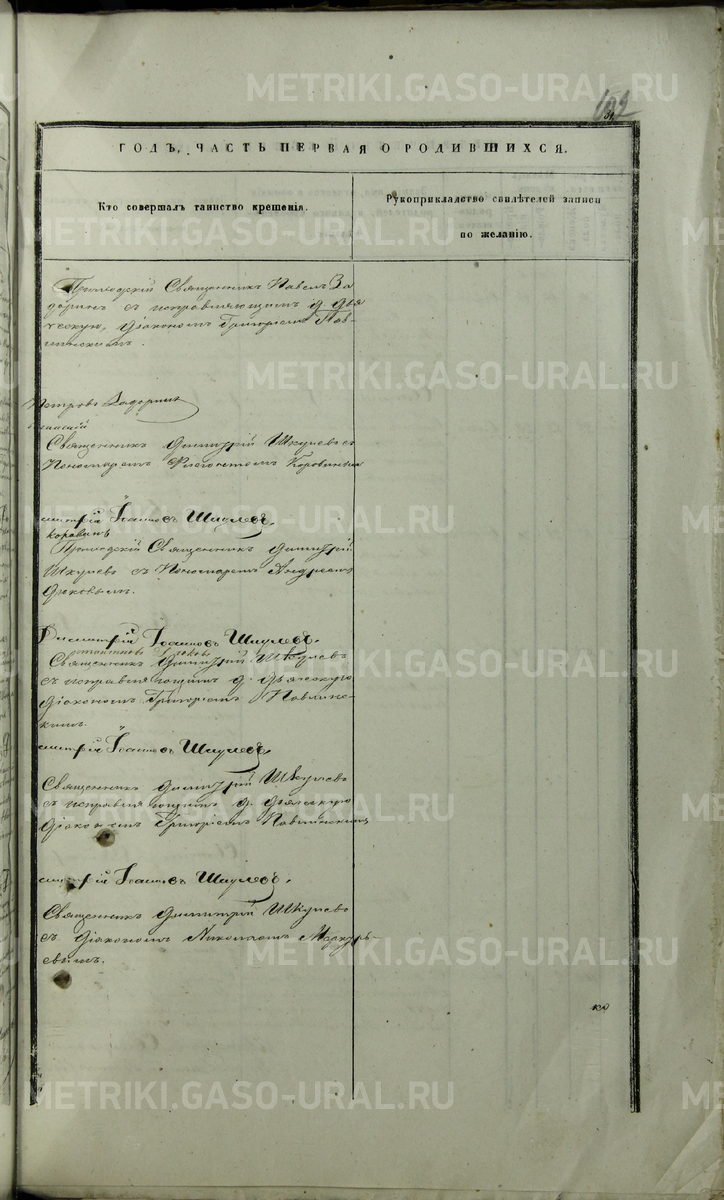 METRIKI.GASO-URAL.RU
ГОДЪ, ЧАСТЬ ПЕРВАЯ О РОДИВШИХСЯ.
Кто совершалъ таинство крещенія.
Рукоприкладство свидѣтелей записи
по желанію.
Приходскій Священникъ Павелъ За
доринъ съ исправляющимъ д. дья
ческую, діакономъ Григоріемъ Пав-
линскимъ.
Петровъ Задоринъ
Священникъ Димитрій Шкулевъ съ
Пономаремъ Коровинымъ
Іоанновъ
Коровинъ
Приходскій Священникъ Димитрій
Шкулевъ съ Пономаремъ Андреемъ
Дьяковымъ.
Димитрій Іоанновъ
Священникъ Димитрій Шкулевъ
съ исправляющимъ д. дьяческую
діакономъ Григоріемъ Павлинс-
кимъ.
Іоанновъ
Священникъ Димитрій Шкулевъ
съ исправляющимъ д. дьяческую
діакономъ Григоріемъ Павлинскимъ
Іоанновъ
Священникъ Димитрій Шкулевъ
съ діакономъ Николаемъ Меркурь-
евымъ.